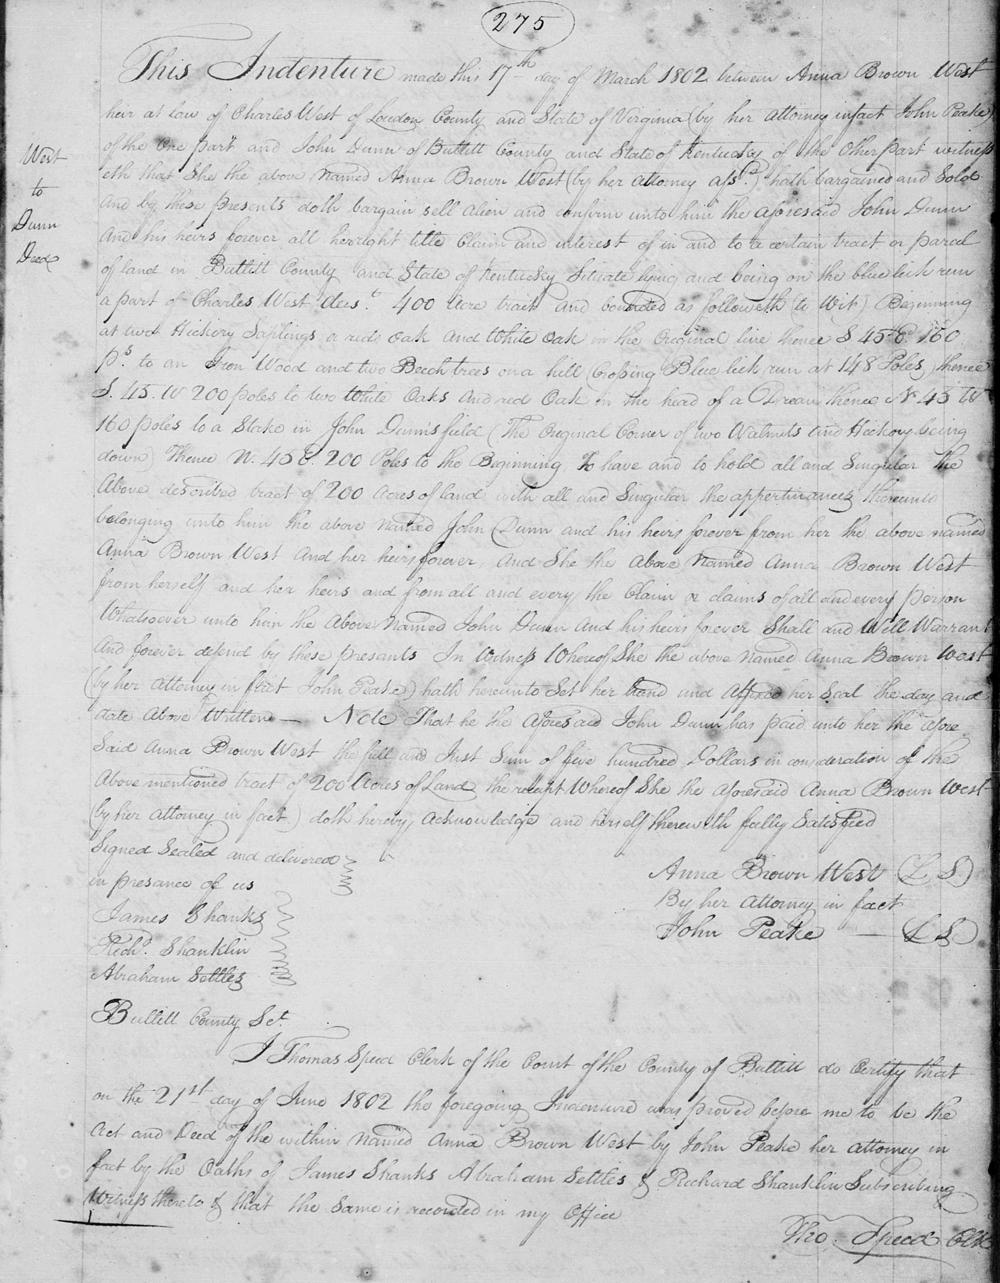 275
This Indenture made this 17th day of March 1802 between Anna Brown West
heir at law of Charles West of Loudon County and State of Virginia (by her Attorney infact John Peake)
of the One part and John Dunn of Bullitt County and State of Kentucky of the Other part witness
eth that She the above Named Anna Brown West (by her Attorney afsd.) hath bargained and Sold
And by these presents doth bargain sell Alien and confirm unto him the aforesaid John Dunn
And his heirs forever all her right title Claim and interest of in and to a certain tract or parcel
of land in Bullitt County and State of Kentucky Situate lying and being on the blue lick run
a part of Charles West Decst. 400 Acre tract and bounded as followeth (to Wit) Beginning
at two Hickory Saplings a red Oak and White Oak in the Original line thence S 45 E 160
Ps. to an Iron Wood and two Beech trees on a hill (Crossing Blue lick run at 148 Poles) thence
S. 45. W 200 poles to two White Oaks And red Oak in the head of a Drean thence N 45 W
160 poles to a Stake in John Dunns field (The Original Corner of two Walnuts and Hickory being
down) Thence N. 45 E. 200 Poles to the Beginning To have and to hold all and Singular the
Above described tract of 200 Acres of land with all and Singular the appertinances thereunto
belonging unto him the above Named John Dunn and his heirs forever from her the above named
Anna Brown West And her heirs forever, And She the Above Named Anna Brown West
from herself and her heirs and from all and every the Claim or claims of all and every person
Whatsoever unto him the Above Named John Dunn And his heirs forever Shall and Will Warrant
And forever defend by these presants In Witness Whereof She the above Named Anna Brown West
(by her Attorney in fact John Peake) hath hereunto Set her hand and Affixed her Seal the day and
date Above Written — Note That he the Aforesaid John Dunn has paid unto her the afore
Said Anna Brown West the full and Just Sum of five hundred Dollars in consideration of the
Above mentioned tract of 200 Acres of Land the receipt Whereof She the aforesaid Anna Brown West
(by her Attorney in fact) doth hereby Acknowledge and herself therewith fully Satisfied
West
to
Dunn
Deed
Signed Sealed and delivered
in presance of us
James Shanks
Richd. Shanklin
Abraham Settles
Anna Brown West (L S)
By her Attorney in fact
John Peake — (L S)
Bullitt County Sct.
I Thomas Speed Clerk of the Court of the County of Bullitt do Certify that
on the 21st day of June 1802 the foregoing Indenture was proved before me to be the
Act and Deed of the within Named Anna Brown West by John Peake her attorney in
fact by the Oaths of James Shanks Abraham Settles & Richard Shanklin Subscribing
Witness thereto & that the Same is recorded in my Office
Tho. Speed Clk